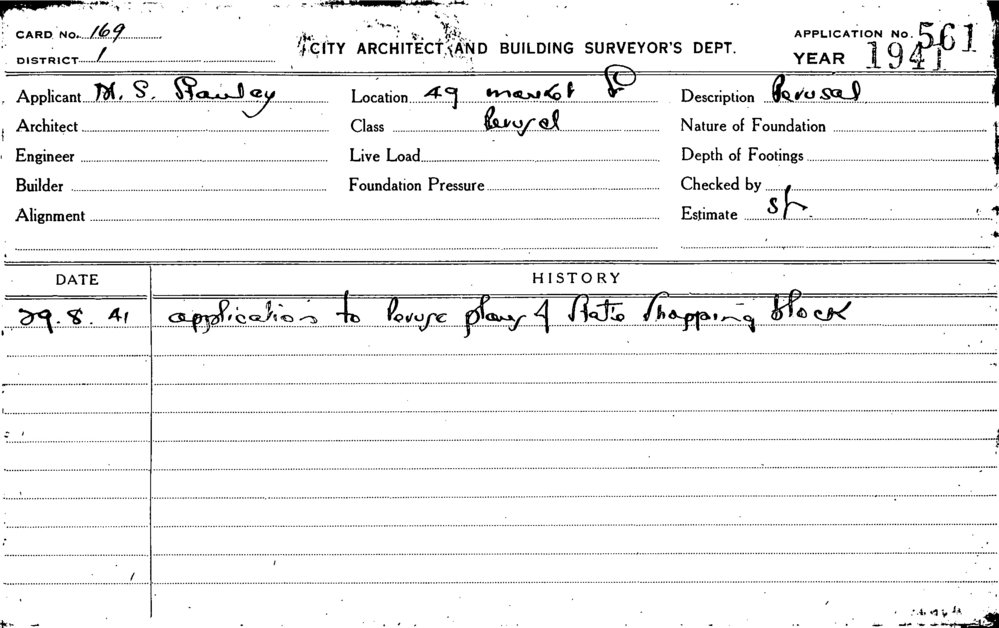 CARD No. 169
CITY ARCHITECT AND BUILDING SURVEYOR'S DEPT.
APPLICATION No. 561
DISTRICT 1
YEAR 1941
Applicant M. S. Stanley Location 49 market St Description Perusal
Architect Class Perusal Nature of Foundation
Engineer Live Load Depth of Footings
Builder Foundation Pressure Checked by
Alignment Estimate 5/-
DATE HISTORY
29. 8. 41 application to Peruse plans of State Shopping Block